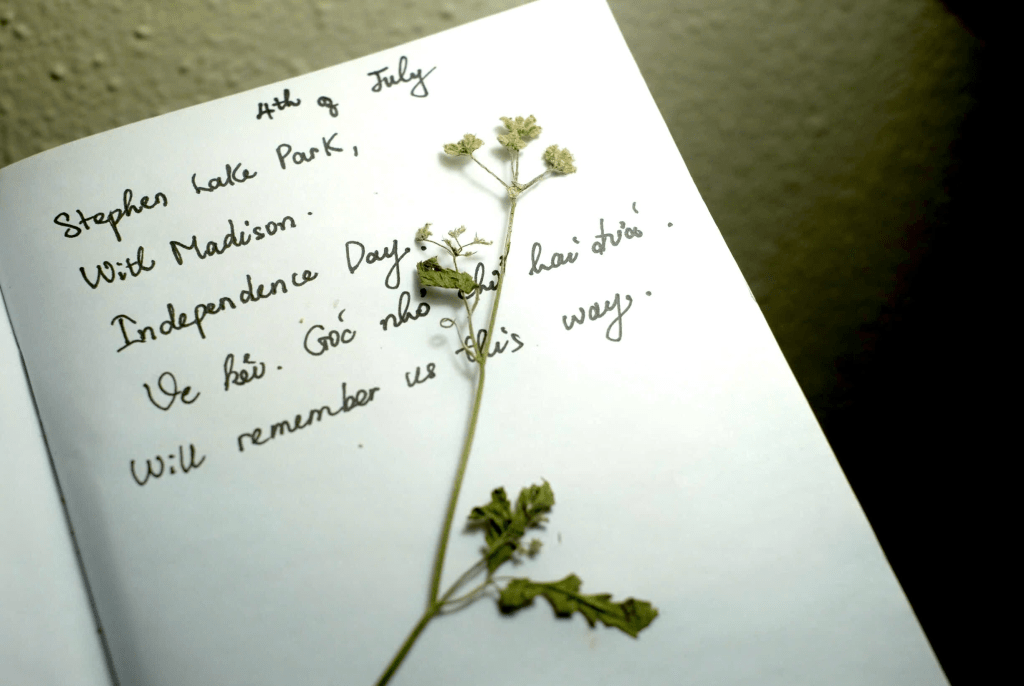 4th of July
Stephen Lake Park,
With Madison.
Independence Day.
Ve kêu. Góc nhỏ hai đứa.
Will remember us this way.